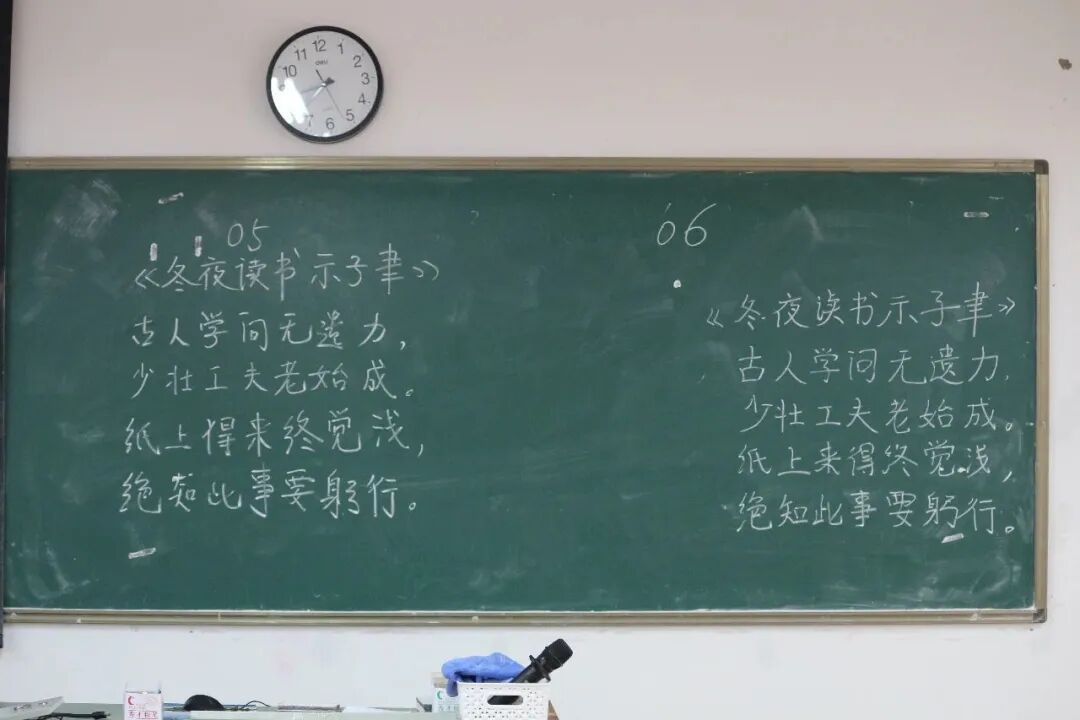 12
11
1
10
2
deli
3
4
7
5
6
05
《冬夜读书示子聿》
古人学问无遗力,
少壮工夫老始成。
纸上得来终觉浅,
绝知此事要躬行。
06
《冬夜读书示子聿》
古人学问无遗力,
少壮工夫老始成。
纸上来得终觉浅,
绝知此事要躬行。